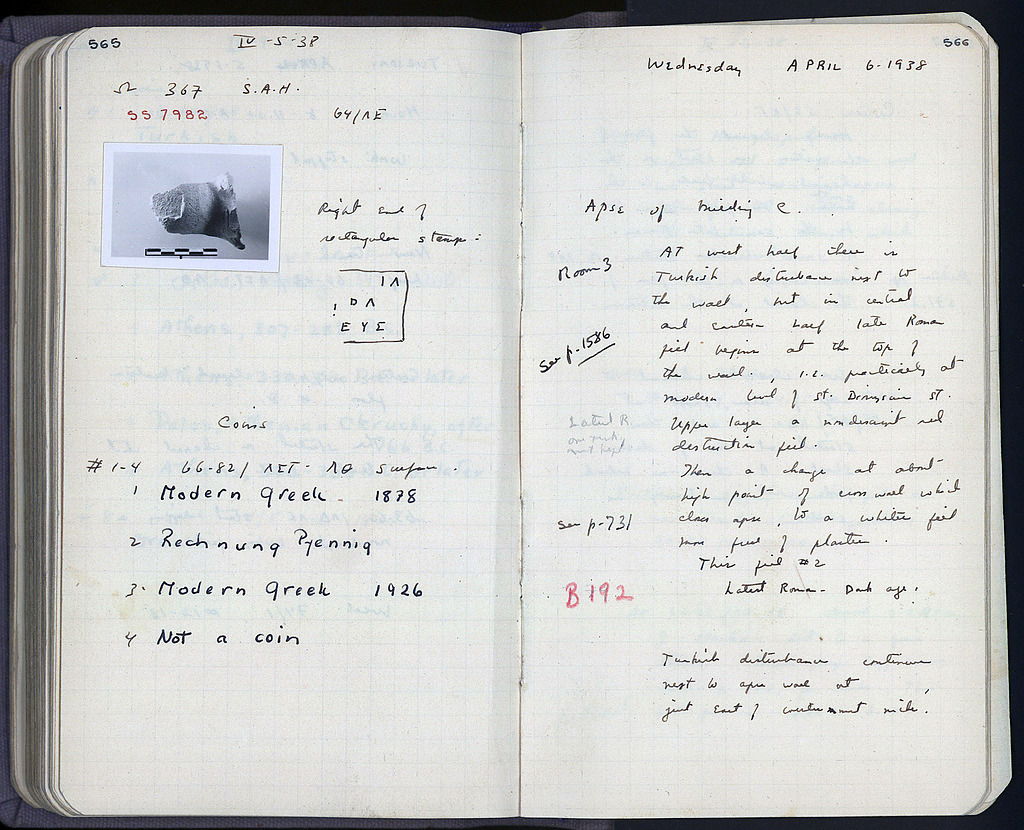 565
IV-5-38
Ω 367 S.A.H.
SS 7982 64/ΛΕ
Right end of
rectangular stamp:
ΙΛ
ΔΛ
ΕΥΣ
Coins
#1-4 66-82/ΛΣΤ-ΛΘ surface.
1 Modern Greek - 1878
2 Rechnung Pfennig
3. Modern Greek 1926
4 Not a coin
566
Wednesday APRIL 6-1938
Apse of Building C.
Room 3
At west half there is
Turkish disturbance next to
the wall, but in central
and eastern half late Roman
See p. 1586
fill begins at the top of
the wall, i.e. practically at
modern level of St. Dionysius St.
Latest R.
Upper layer a nondescript red
destruction fill.
Then a change at about
high point of cross wall which
See p-731
close apse, to a whiter fill
more full of plaster.
This fill #2
B 192
Latest Roman - Dark age.
Turkish disturbance continues
next to apse wall at
just East of niche.